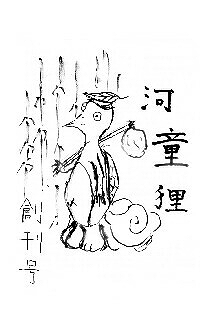 河童狸
創刊号